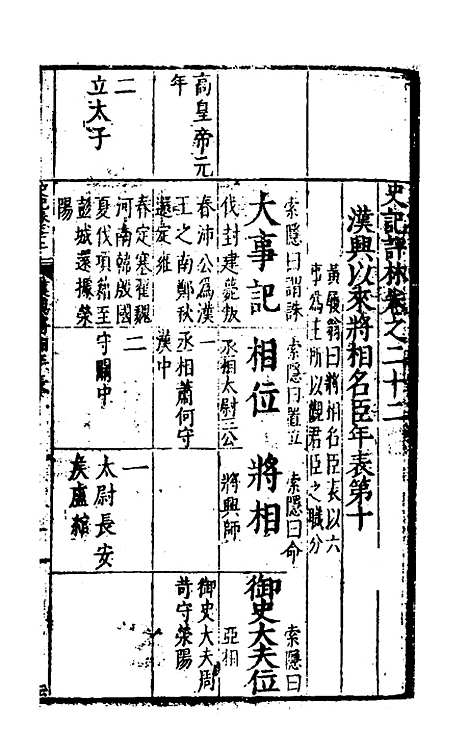 史記評林卷之二十二
漢興以來將相名臣年表第十
黃履翁曰將相名臣表以六
事爲主所以觀君臣之職分
大事記
索隱曰謂誅
伐封建薨叛
相位
索隱曰置立
丞相太尉三公
將相
索隱曰命
將興師
御史大夫位
索隱曰
亞相
高皇帝元
年
春沛公爲漢
王之南鄭秋
還定雍
一
丞相蕭何守
漢中
御史大夫周
苛守滎陽
二
立太子
春定塞翟魏
河南韓殷國
夏伐項籍至
彭城還據滎
陽
二
守關中
一
太尉長安
侯盧綰